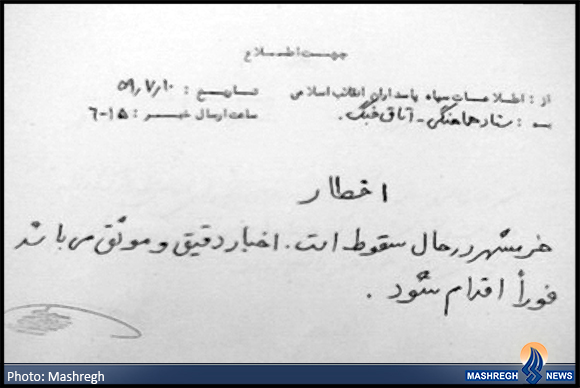 جهت اطلاع
از : اطلاعات سپاه پاسداران انقلاب اسلامی
تاریخ : ۵۹٫۷٫۱۰
به : ستاد هماهنگی - اتاق جنگ .
ساعت ارسال خبر : ۱۵-۶
اخطار
خرمشهر در حال سقوط است . اخبار دقیق و موثق می باشد
فوراً اقدام شود .
Photo: Mashregh
MASHREGH NEWS